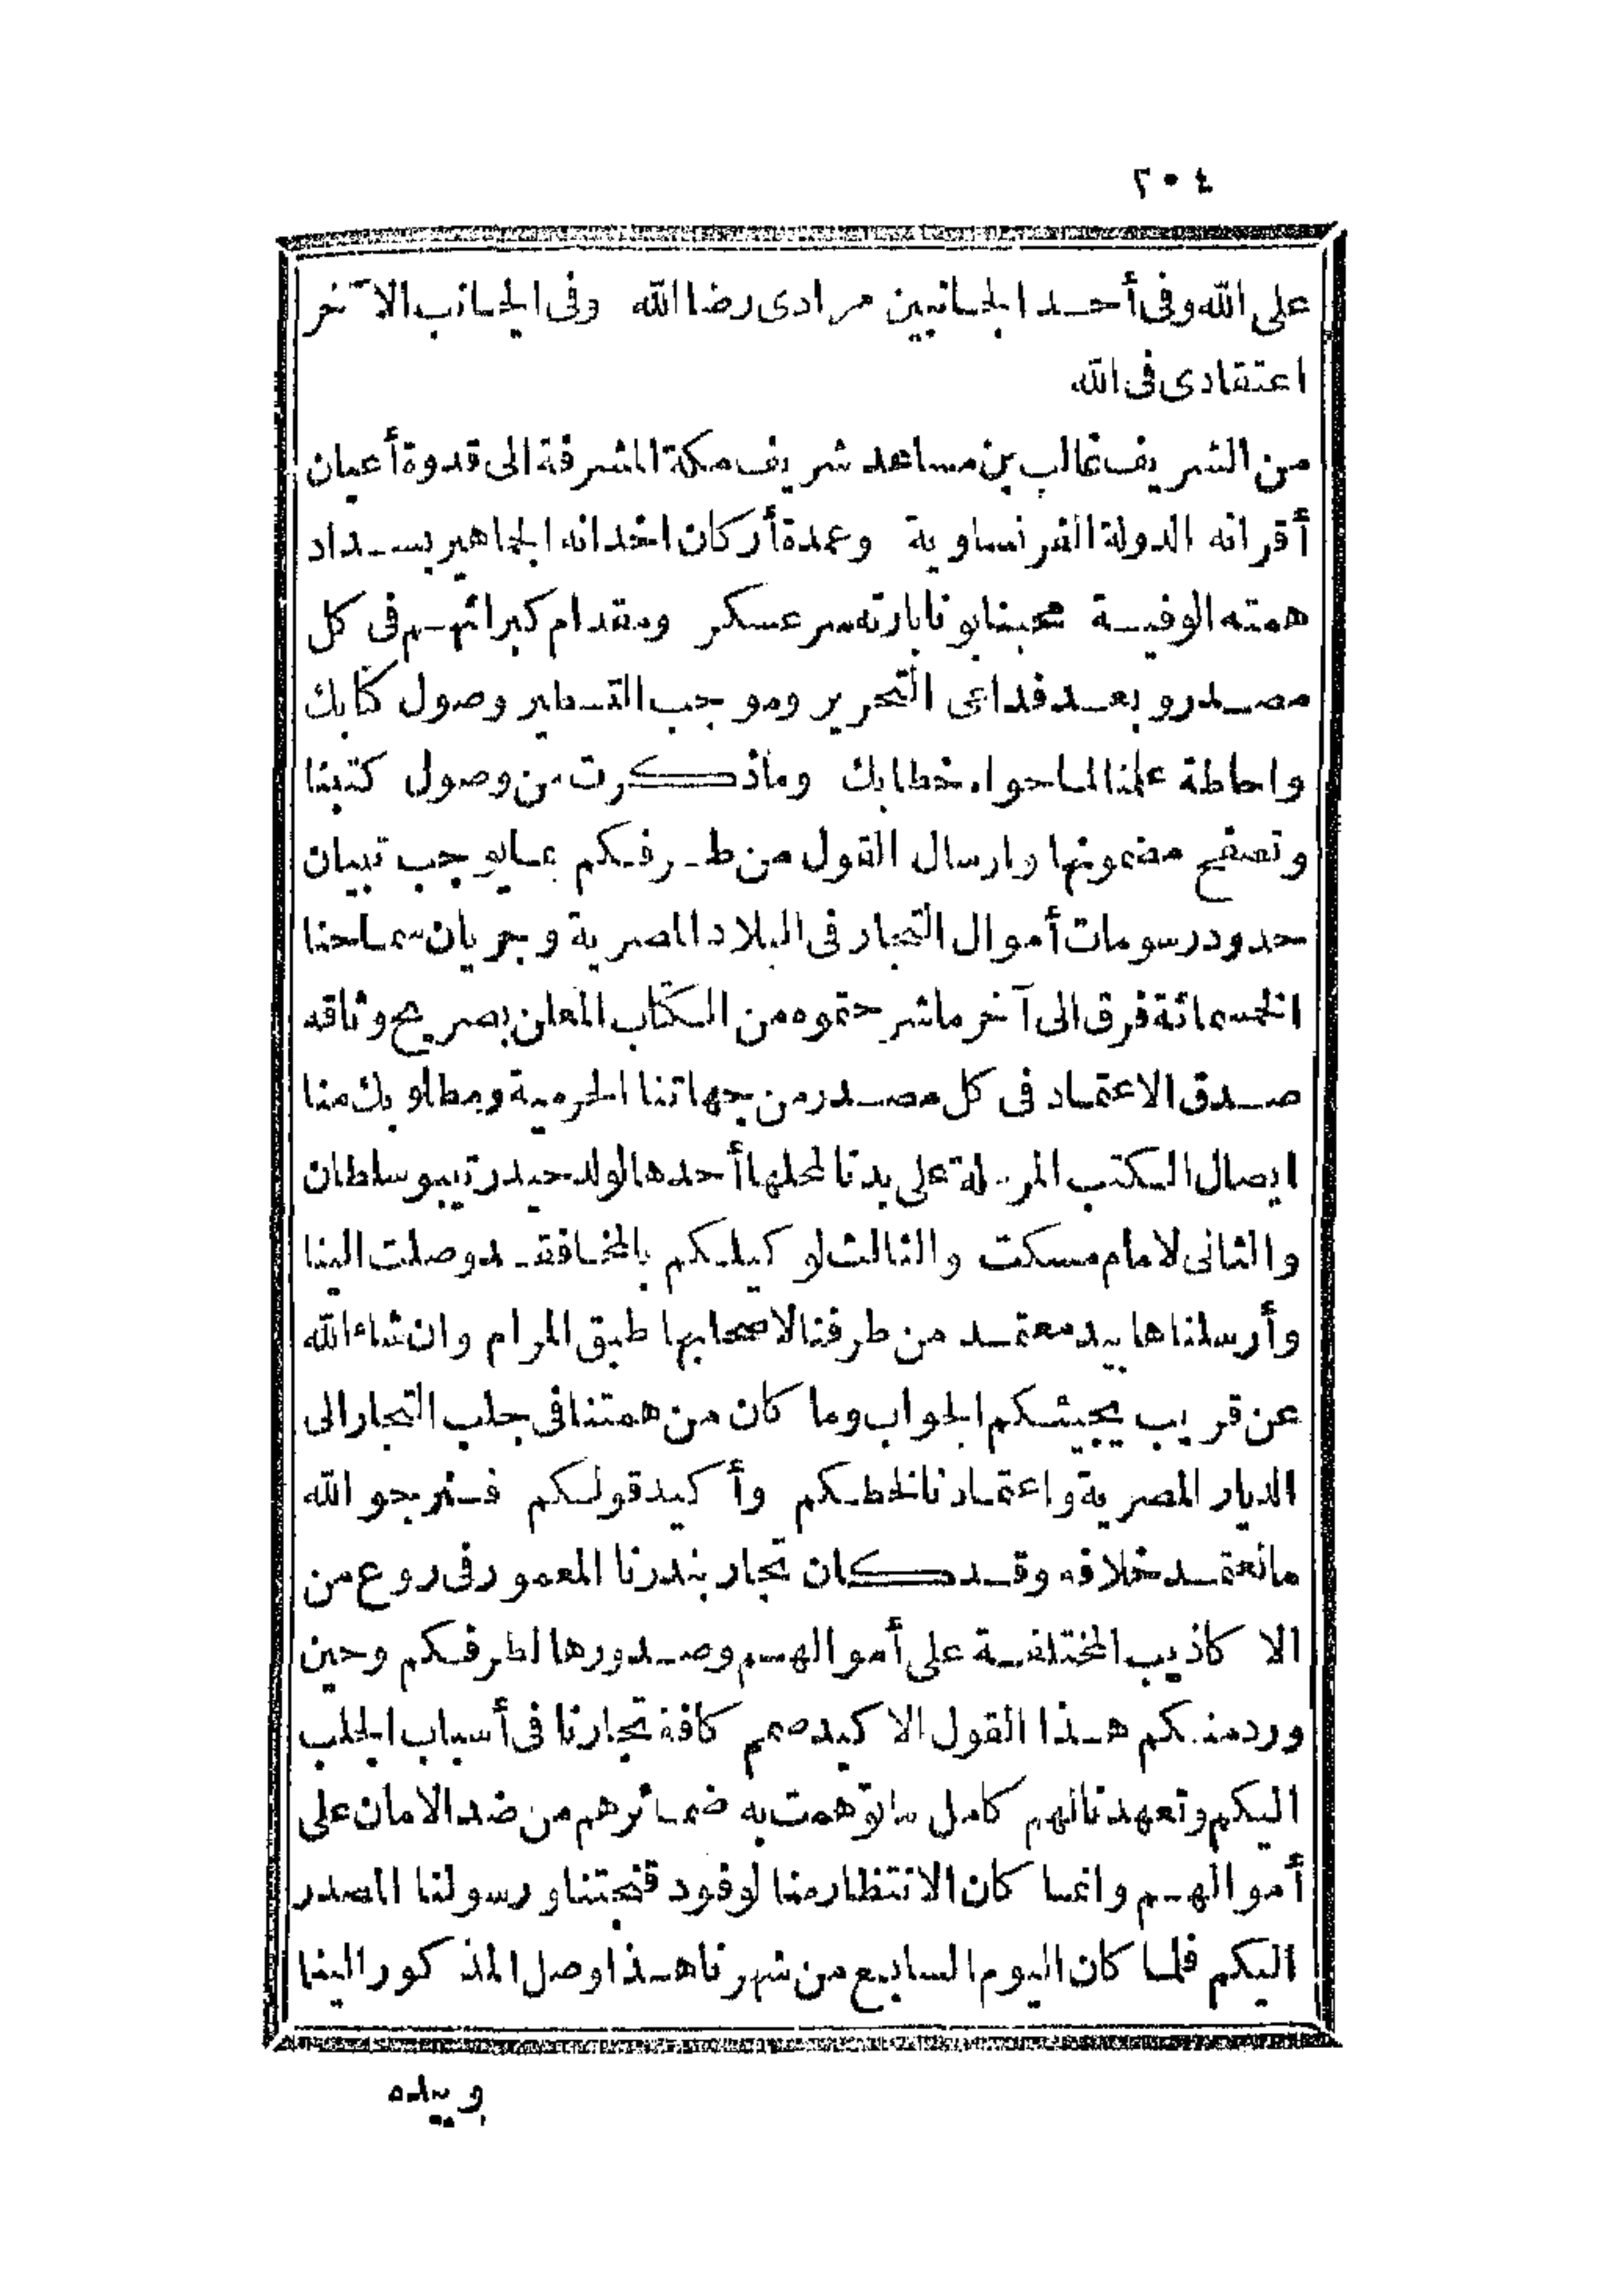 ٢٠٤
على الله وفى أحد الجانبين مرادى رضا الله وفى الجانب الآخر
اعتقادى فى الله
من الشريف غالب بن مساعد شريف مكة المشرفة الى قدوة أعيان
أقرانه الدولة الفرنساوية وعمدة أركان اخدانه الجماهير بسداد
همته الوفية محبنا بونابارته سر عسكر ومقدام كبرائهم فى كل
مصدر وبعد فداعى التحرير وموجب التسطير وصول كتابك
واحاطة علمنا لما حواه خطابك وما ذكرت من وصول كتبنا
وتصفح مضمونها وارسال القول من طرفكم بما يوجب تبيان
حدود رسومات أموال التجار فى البلاد المصرية وجريان سماحنا
الخمسمائة فرق الى آخر ما شرحتموه من الكتاب المعلن بصريح وثاقه
صدق الاعتماد فى كل مصدر من جهاتنا الحرمية ومطلوبك منا
ايصال الكتب المرسلة على يدنا لمحلها أحدها لولد حيدر تيبو سلطان
والثانى لامام مسكت والثالث لوكيلكم بالمخا فقد وصلت الينا
وأرسلناها بيد معتمد من طرفنا لاصحابها طبق المرام وان شاء الله
عن قريب يجيئكم الجواب وما كان من همتنا فى جلب التجار الى
الديار المصرية واعتمادنا لخطكم وأكيد قولكم فنرجو الله
ما نعتمد خلافه وقد كان تجار بندرنا المعمور فى روع من
الاكاذيب المختلفة على أموالهم وصدورها لطرفكم وحين
ورد منكم هذا القول الاكيد صمم كافة تجارنا فى أسباب الجلب
اليكم وتعهدنا لهم كامل ما توهمت به ضمائرهم من ضد الامان على
أموالهم وانما كان الانتظار منا لوفود قنجتنا ورسولنا المصدر
اليكم فلما كان اليوم السابع من شهرنا هذا وصل المذكور الينا
وبيده